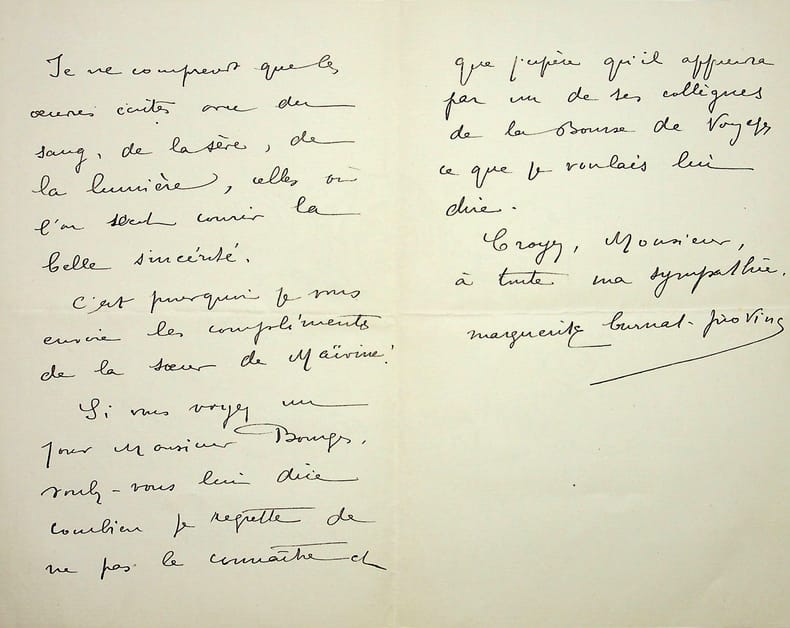 Je ne comprends que les
œuvres écrites avec du
sang, de la sève, de
la lumière, celles où
l'on sent courir la
belle sincérité.
C'est pourquoi je vous
envoie les compliments
de la sœur de Maïvine!
Si vous voyez un
jour Monsieur Bourges,
voulez-vous lui dire
combien je regrette de
ne pas le connaître et
que j'espère qu'il apprendra
par un de ses collègues
de la Bourse de Voyages
ce que je voulais lui
dire.
Croyez, Monsieur,
à toute ma sympathie.
marguerite burnat-provins